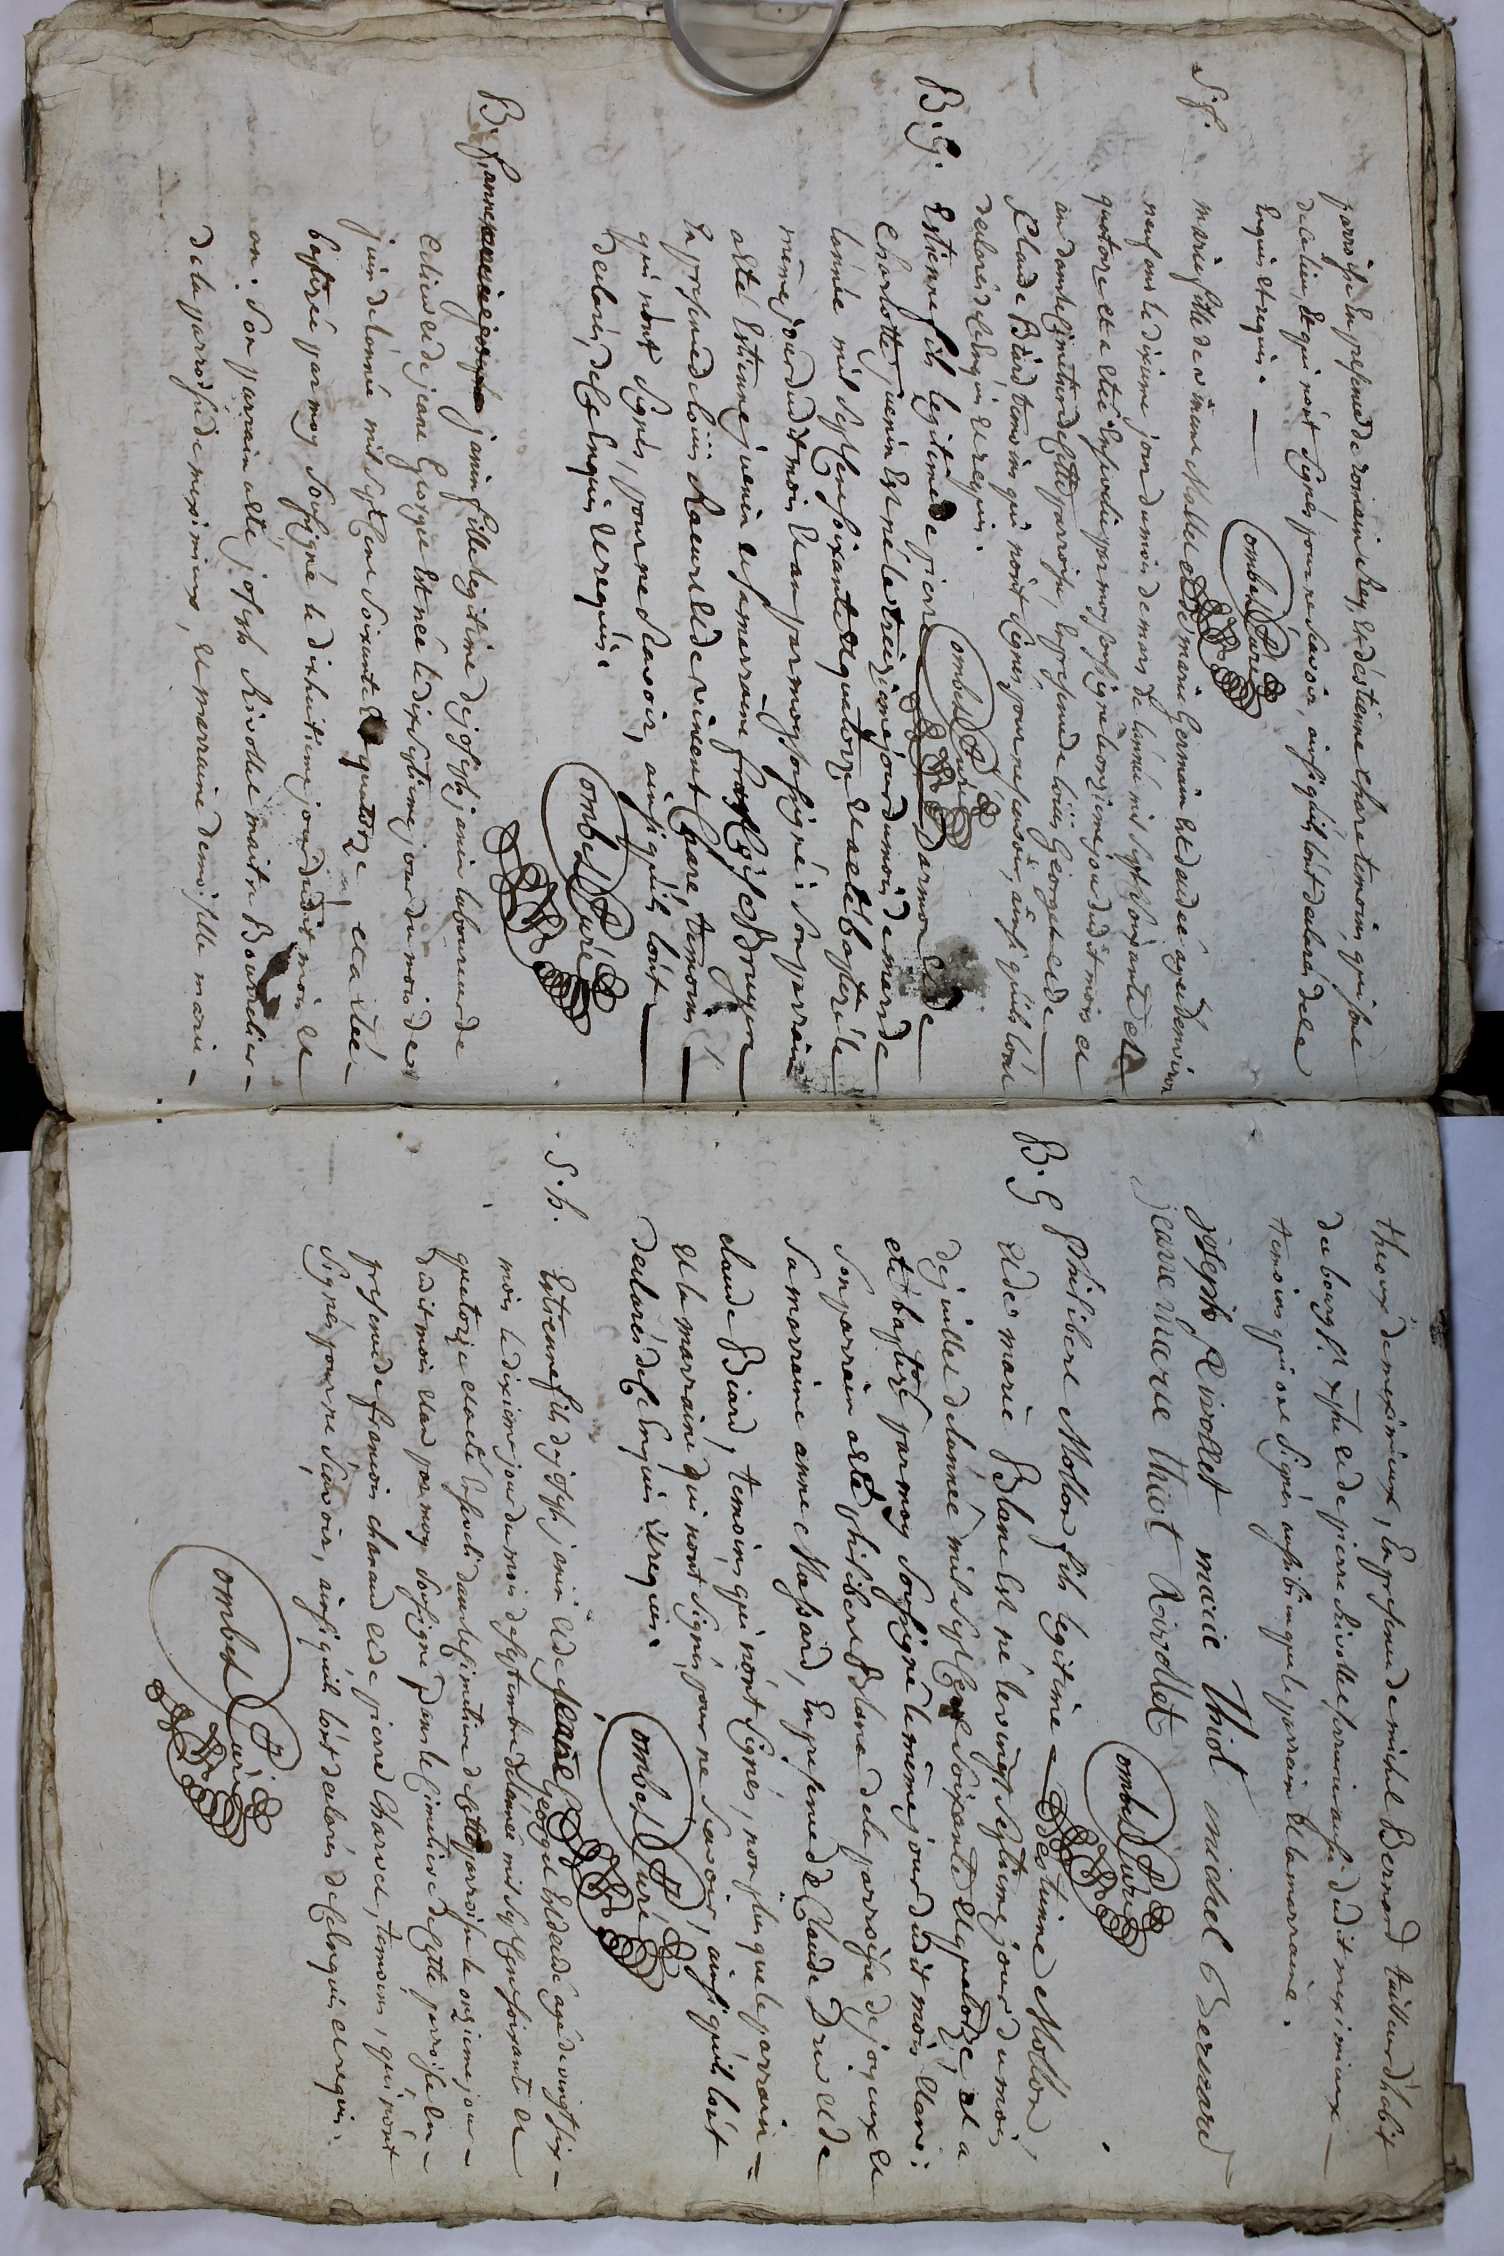 parroisse En presence de romain Rey, et d'éstienne chare temoins, qui sont
de ce lieu, et qui n'ont signés pour ne scavoir, ainsi qu'ils l'ont declarés dece
Enquis et requis.
Combet Curé
S. f. marie fille de vincent Mollet et de marie Germain est decedée agée d'environ
neuf ans le dixieme jour du mois de mars de l'année mil sept cent soixante et
quatorze et a étée Ensevelie par moy soussigné le onzieme jour dudit mois et
an dans le cimetiere de cette parroisse, En presence de loüis Georget et de
Claude Biard temoins qui n'ont signés pour ne scavoir, ainsi qu'ils l'ont
declarés de ce Enquis et requis.
Combet Curé
B. G. Estienne fils legitime de pierre Darmon et de
Charlotte juenin Est né le treizieme jour du mois de mars de
l'année mil sept cent soixante et quatorze et a eté baptizé le
même jour dudit mois et an par moy soussigné: son parrain
a été Estienne juenin et sa marraine françoise Bruyere
En presence de loüis Raeurs et de vincent Chare, temoins
qui n'ont signés, pour ne scavoir, ainsi qu'ils l'ont
declarés, de ce Enquis et requis.
Combet Curé
B. f. anne janin fille legitime de joseph janin laboureur de
ce lieu et de jeane George Est née le dix septieme jour du mois de
juin de l'année mil sept cent soixante et quatorze et a étée
baptizée par moy soussigné le dixhuitieme jour dudit mois et
an. Son parrain a été joseph Rivollet maitre Bourrelier
de la parroisse de meximieux, et marraine demoiselle marie
thiout de meximieux, En presence de michel Bernard tailleur d'habit
du bourg st xphe et de pierre Rivollet aussi dudit meximieux
temoins qui ont signés aussi bien que le parrain et la marraine.
joseph Rivollet marie thiot michel Bernard
jeane marie thiot Rivollet
Combet Curé
B. G Philibert Mollon fils legitime d'Estienne Mollon,
et de marie Blanc Est né le vingt septieme jour du mois
de juillet de l'année mil sept cent soixante et quatorze et a
eté baptizé par moy soussigné le même jour dudit mois et an:
son parrain a été philibert Blanc de la parroisse de joyeux et
sa marraine anne Massard, En presence de Claude Dru et de
claude Biard, temoins qui n'ont signés, non plus que le parrain
et la marraine qui n'ont signés, pour ne scavoir, ainsi qu'ils l'ont
declarés de ce Enquis et requis.
Combet Curé
S. h. Estienne fils de joseph janin et de jeane George Est decedé agé de vingt six
mois le dixieme jour du mois de septembre de l'année mil sept cent soixante et
quatorze et a été Enseveli dans le cimetiere de cette parroisse le onzieme jour
dudit mois et an par moy soussigné dans le cimetiere de cette parroisse En
presence de francois charaud et de pierre Charvet, temoins, qui n'ont
signés pour ne scavoir, ainsi qu'ils l'ont declarés de ce Enquis et requis.
Combet Curé